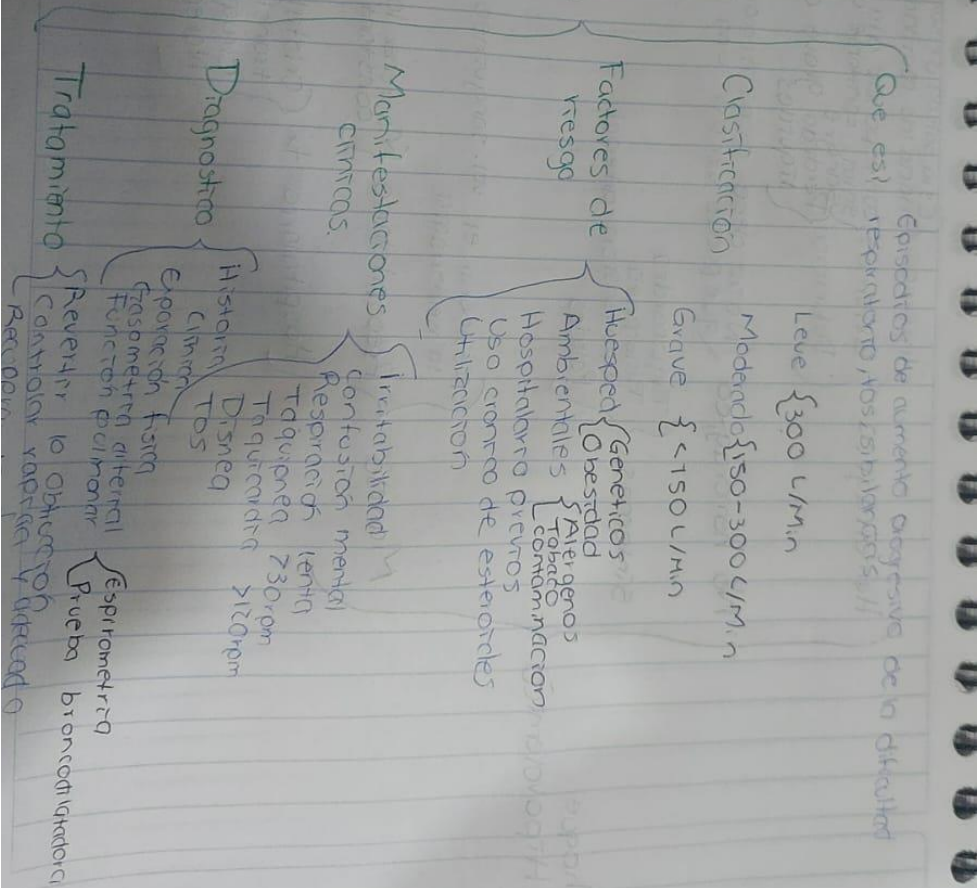 Que es?
Episodios de aumento progresivo de la dificultad
respiratorio, tos, sibilancias
Clasificación
Leve {300 L/Min
Moderado {150-300 L/Min
Grave {<150 L/Min
Factores de
riesgo
Huesped {Geneticos
Obesidad
Ambientales {Alergenos
Tabaco
contaminación
Hospitalario previos
Uso cronico de esteroides
Utilizacion
Manifestaciones
clinicas.
Irritabilidad
Confusión mental
Respiración lenta
Taquipnea >30rpm
Taquicardia >120rpm
Disnea
Tos
Diagnostico
Historia
clinica
Exploración fisica
Gasometria arterial
Función pulmonar {Espirometria
Prueba broncodilatadora
Tratamiento
Revertir la obstrucción
Controlar rapida y adecuada